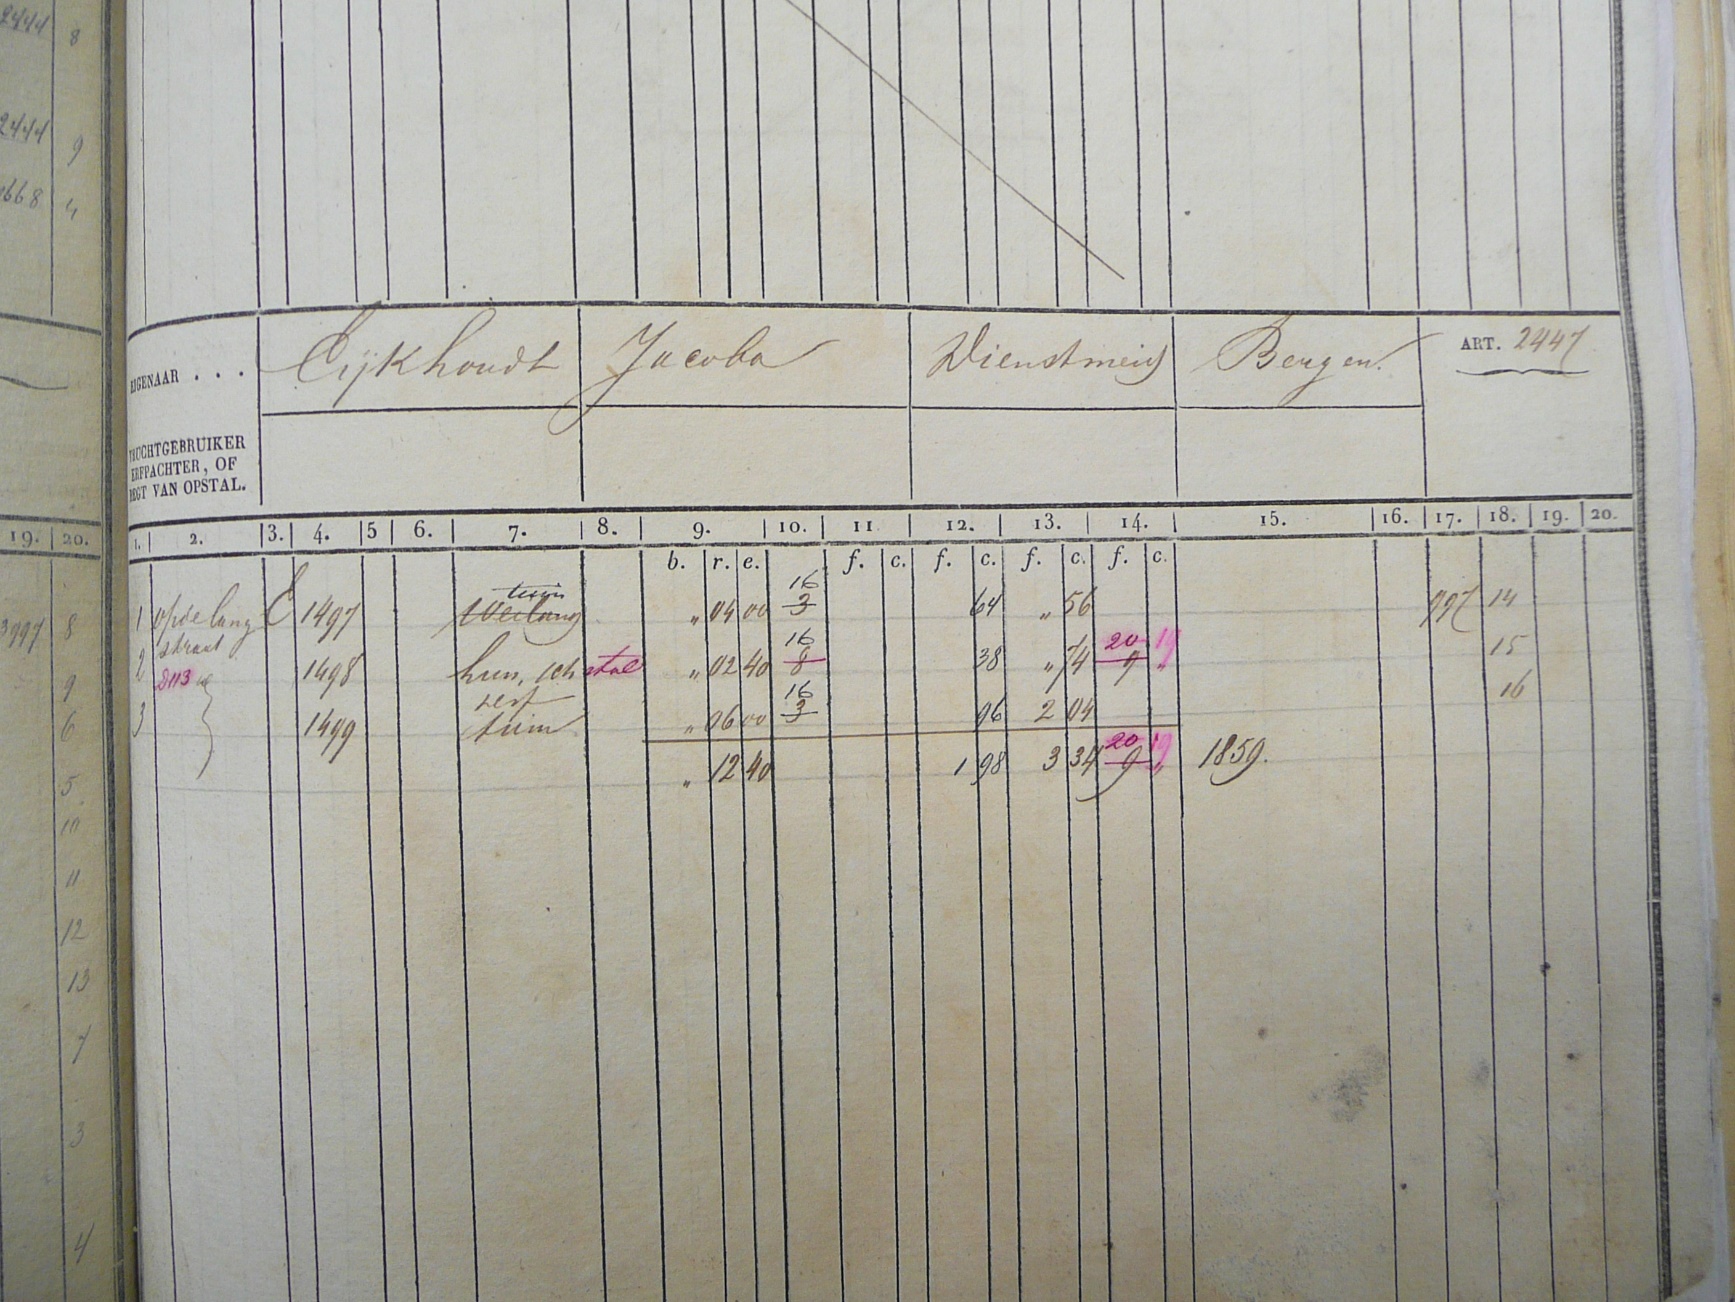 2444 8
2444 9
1668 4
19. 20.
3997 8
9
6
5
10
11
12
13
7
3
4
EIGENAAR . . . Eijkhoudt Jacoba Dienstmeid Bergen. ART. 2447
VRUCHTGEBRUIKER
ERFPACHTER, OF
REGT VAN OPSTAL.
1. 2. 3. 4. 5 6. 7. 8. 9. 10. 11 12. 13. 14. 15. 16. 17. 18. 19. 20.
b. r. e. f. c. f. c. f. c. f. c.
tuin 16
1 op de lang C 1497 Weiland " 04 00 3 64 " 56 997 14
straat 16 20 19
2 1498 huis, sch stal " 02 40 8 38 " 74 9 " 15
D113 erf 16
3 1499 tuin " 06 00 3 96 2 04 16
20 19
" 12 40 1 98 3 34 9 " 1859.